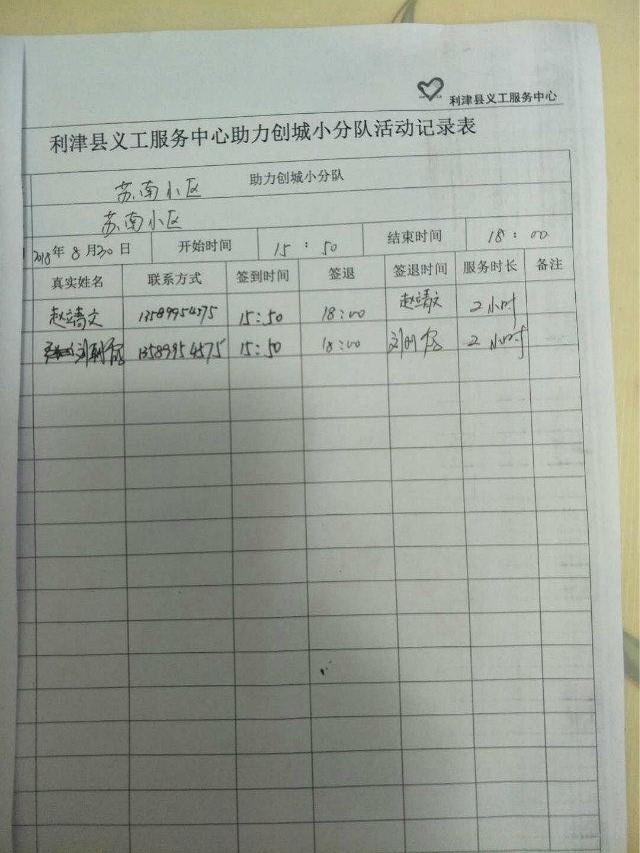 利津县义工服务中心
利津县义工服务中心助力创城小分队活动记录表
苏南小区 助力创城小分队
苏南小区
2018年8月30日 开始时间 15:50 结束时间 18:00
真实姓名 联系方式 签到时间 签退 签退时间 服务时长 备注
赵靖文 15:50 18:00 赵靖文 2小时
13589954575 15:50 18:00 2小时